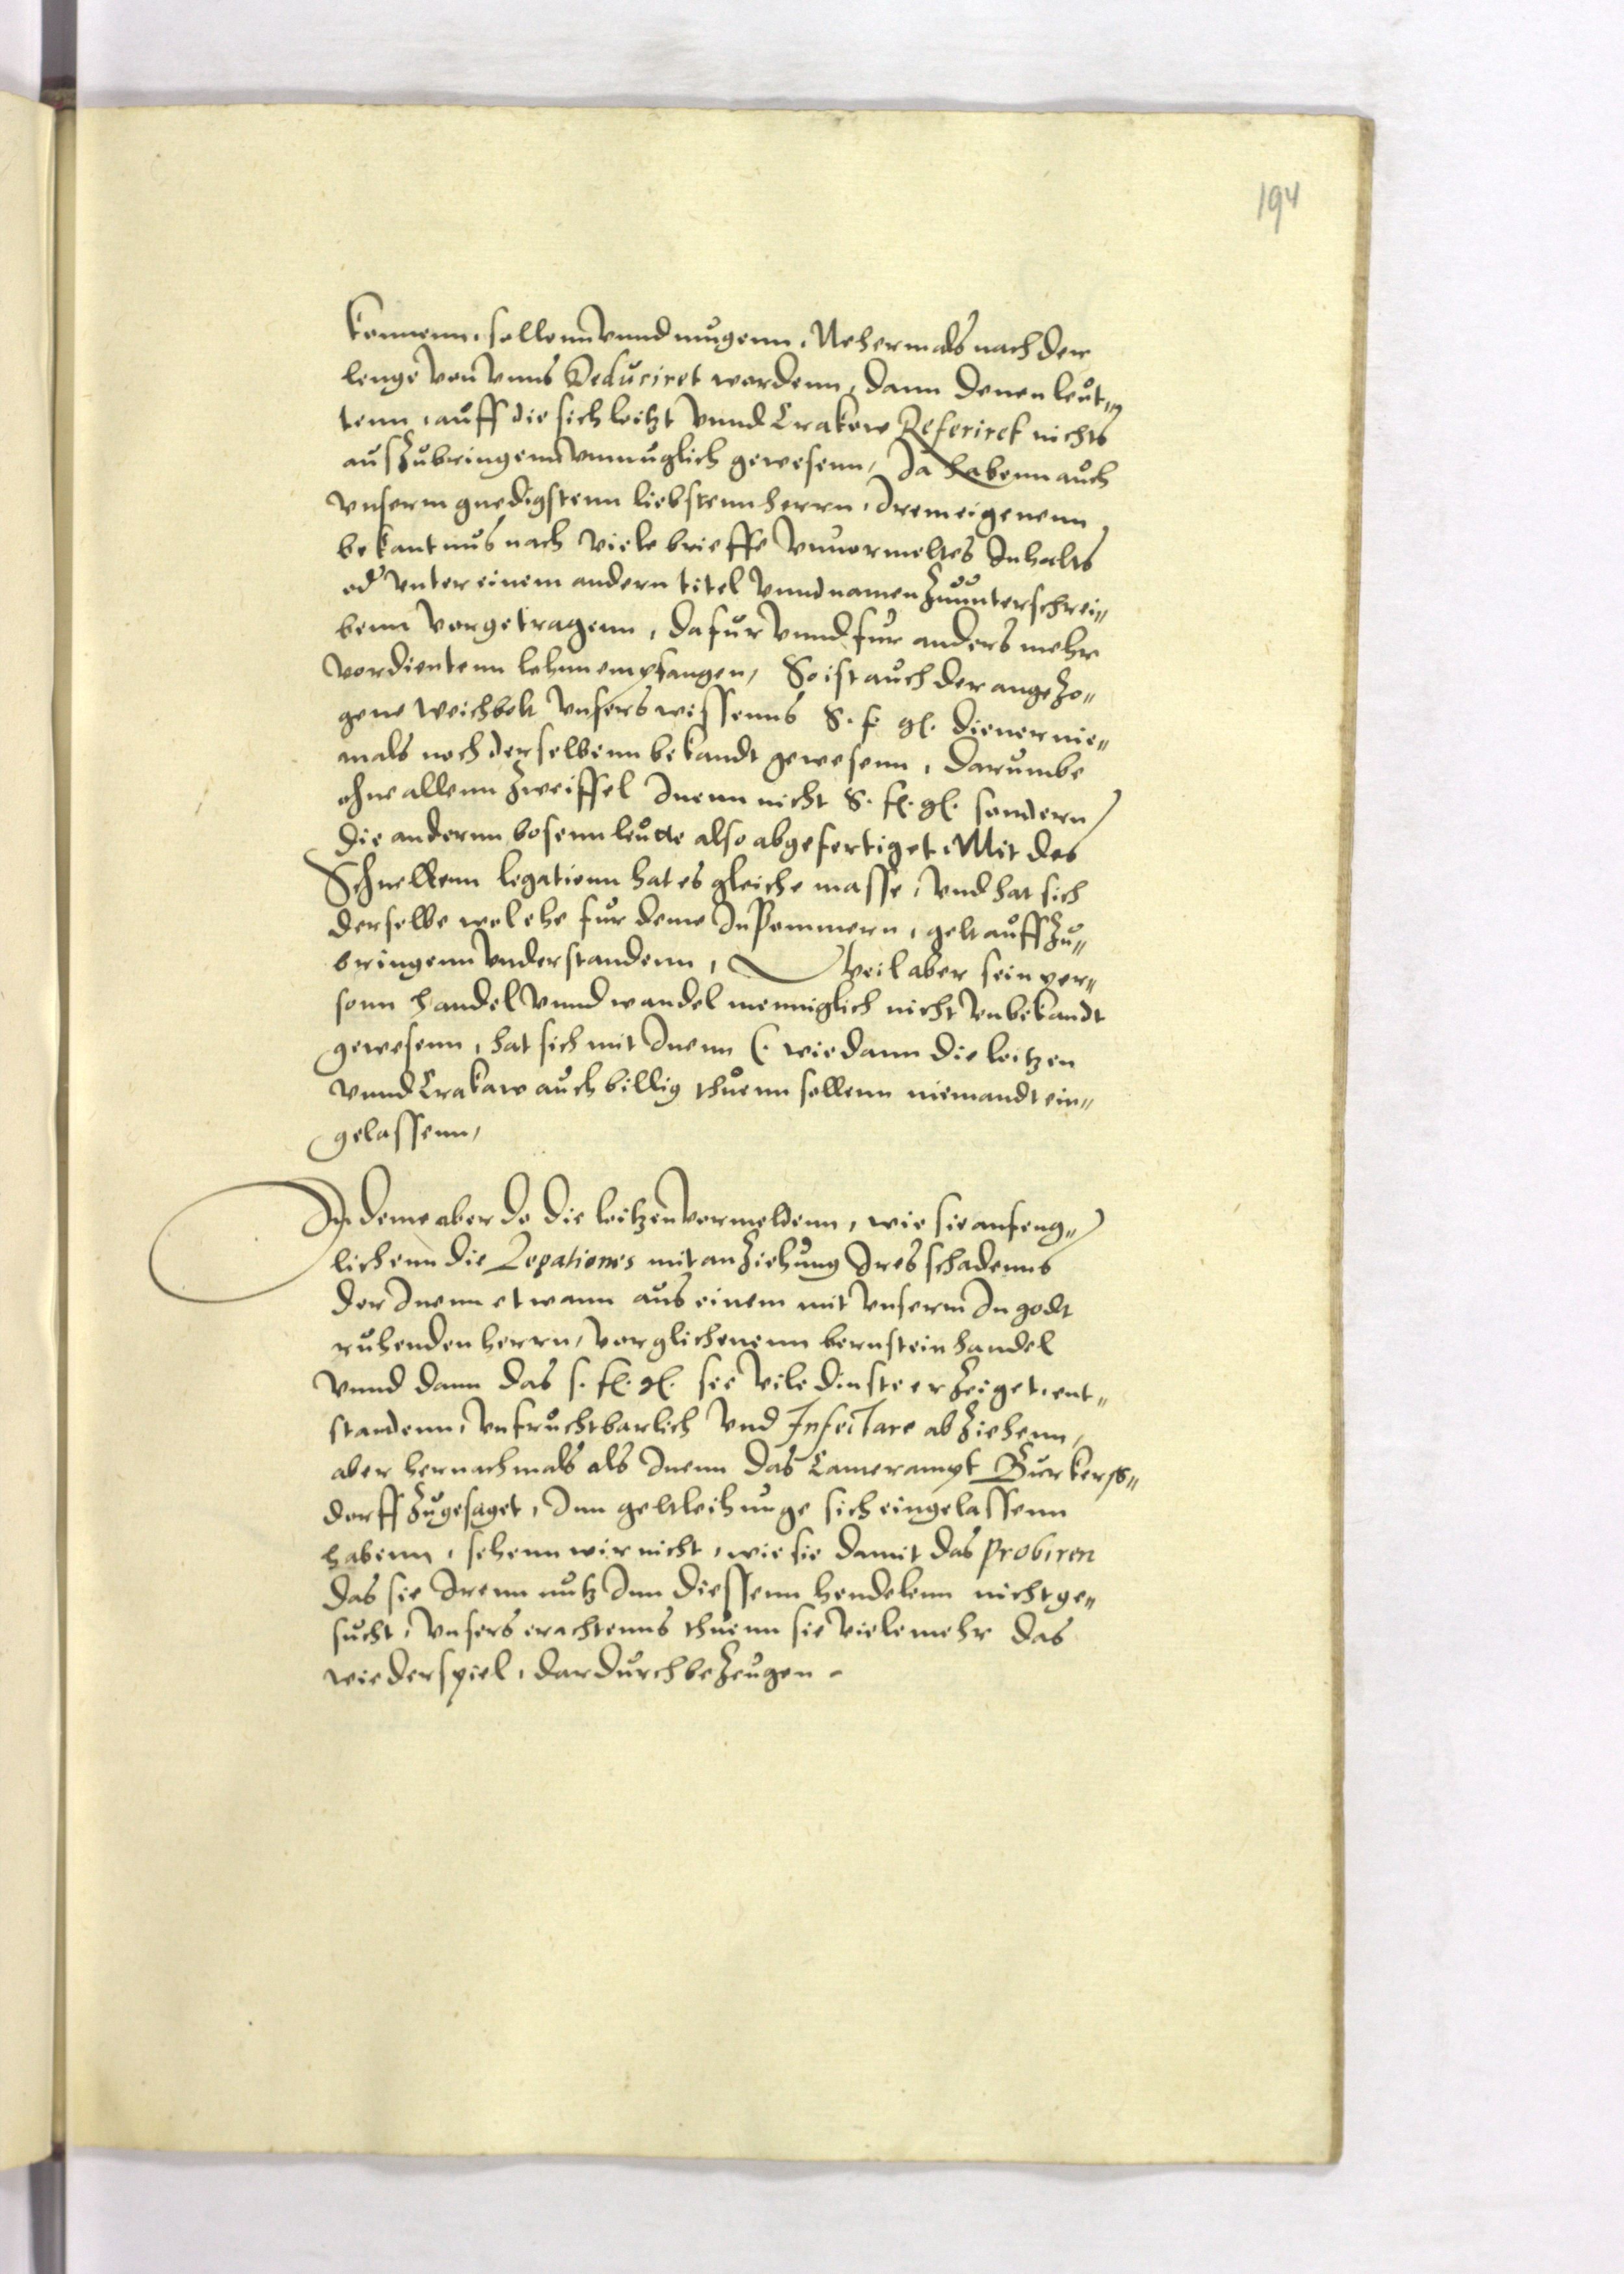 194
konnenn, sollenn vnnd mugenn, Nehermals nach der
lenge von vnns Deduciret wordenn, dann denen leut-
tenn, auff die sich leitzt vnnd Crakow Referiret nichts
auszubringenn vnmuglich gewesenn, Ja habenn auch
vnserm gnedigstenn liebstenn herrn, Irem eigenenn
bekantnus nach viele brieffe vnuormeltes Inhalts
od vnter einem andern titel vnnd namen zuunterschrei-
benn vorgetragenn, dafur vnnd fur anders mehr
vordientenn lohnn empfangen, So ist auch der angezo-
gene Weichbolt vnsers wissenns S. f. gl. diener nie-
mals noch derselbenn bekandt gewesenn, darumbe
ohne allenn zweiffel Inenn nicht S. fl. gl. sondern
die andernn bosenn leutte also abgefertiget, Mit des
Schnellenn legationn hat es gleiche masse, vnd hat sich
derselbe welche fur deme In Pommern, gelt auffzu-
bringenn vnderstandenn, Weil aber sein per-
sonn handel vnnd wandel menniglich nicht vnbekandt
gewesenn, hat sich mit Inenn (. wie dann die loitzen
vnnd Crakaw auch billig thuenn sollenn niemandt ein-
gelassenn,
In deme aber do die loitzen vormeldenn, wie sie anfeng-
lichenn die Legationes mit anziehung Ires schadenns
der Inenn etwann aus einem mit vnserm In godt
ruhenden herrn, vorglichenenn bernstein handel
vnnd dann das s. fl. gl. sie vile dinste erzeiget, ent-
standenn, vnfruchtbarlich vnd Infectare abziehenn,
aber hernachmals als Inenn das Camerampt Burkers-
dorff zugesaget, Inn geltleihunge sich eingelassenn
habenn, sehenn wir nicht, wie sie damit das probiren
das sie Irenn nutz Inn diessenn hendelenn nicht ge-
sucht, vnsers erachtenns thuenn sie vielemehr das
wiederspiel, dardurch bezeugen.